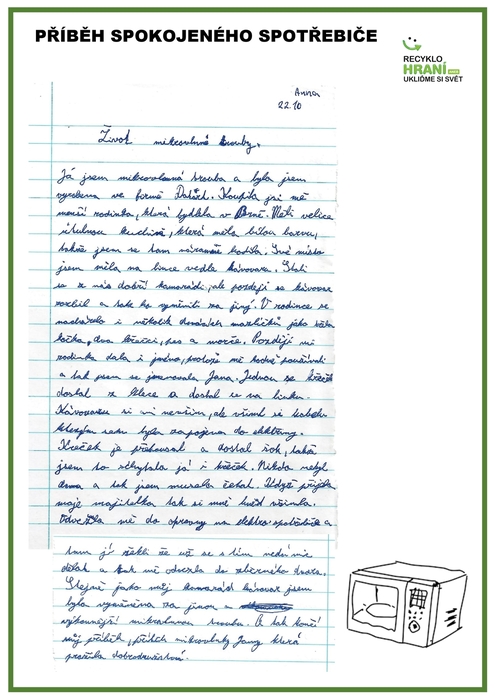 PŘÍBĚH SPOKOJENÉHO SPOTŘEBIČE
RECYKLO
HRANÍ
UKLIĎME SI SVĚT
Anna
22.10
Život mikrovlnné trouby.
Já jsem mikrovlnná trouba a byla jsem
vyrobena ve firmě Koupila jsi mě
rodinka, která bydlela v Brně. Měli velice
útulnou kuchini, která měla bílou barvu,
takže jsem se tam náramně hodila. Své místo
jsem měla na lince vedle kávovara. Stali
se z nás dobří kamarádi, ale později se kávovar
rozbil a tak ho vyměnili za jiný. V rodince se
nacházelo i několik domácích mazlíčků jako
kočka, dva křečci, pes a morče. Později mi
rodinka dala i jméno, protože mě hodně používali
a tak jsem se jmenovala Jana. Jednou se křeček
dostal z klece a dostal se na linku.
Kávovaru si ani nevšim, ale všiml si kabelu
kterým jsem byla zapojena do elektřiny.
Křeček je překousal a dostal šok, takže
jsem to schytala já i křeček. Nikdo nebyl
doma a tak jsem musela čekat. Když přijela
moje majitelka tak si mně hned všimla.
Odvezla mě do opravny na elektro spotřebiče a
tam jí řekli že už se s tím nedá nic
dělat a tak mě odvezla do sběrného dvora.
Stejně jako můj kamarád kávovar jsem
byla vyměněna za jinou a
výkonnější mikrovlnou troubu. A tak končí
můj příběh, příběh mikrovlnky Jany která
prožila dobrodružství.